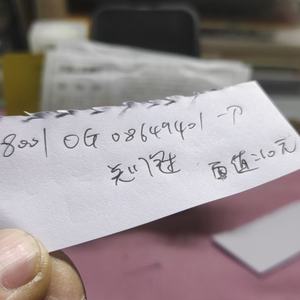 8001 OG 08649401一刀
关门冠 面值=10元